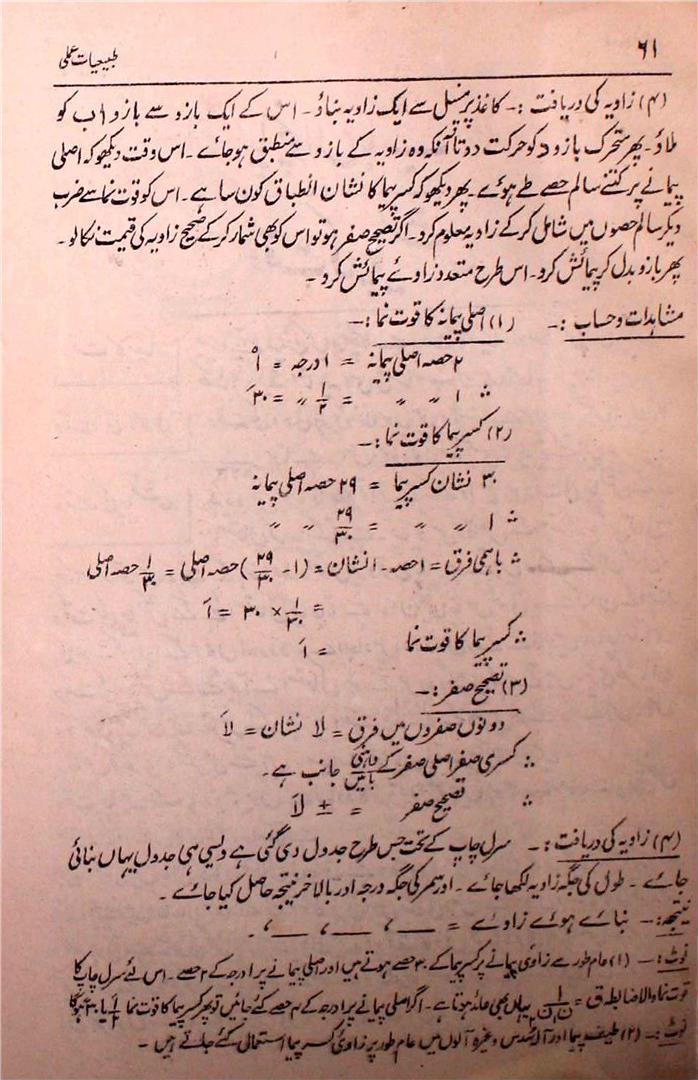 ۶۱
طبیعیات عملی
(۴) زاویہ کی دریافت :۔ کاغذ پر پنسل سے ایک زاویہ بناؤ۔ اس کے ایک بازو سے بازو اب کو
ملاؤ۔ پھر متحرک بازو د کو حرکت دو تا آنکہ وہ زاویہ کے بازو سے منطبق ہوجائے۔ اس وقت دیکھو کہ اصلی
پیمانے پر کتنے سالم حصے طے ہوئے۔ پھر دیکھو کہ کسر پیما کا نشان انطباق کون سا ہے۔ اس کو قوت نما سے ضرب
دیکر سالم حصوں میں شامل کرکے زاویہ معلوم کرو۔ اگر تصحیح صفر ہو تو اس کو بھی شمار کرکے صحیح زاویہ کی قیمت نکالو۔
پھر بازو بدل کر پیمائش کرو۔ اس طرح متعدد زاوئے پیمائش کرو۔
مشاہدات و حساب :۔ (۱) اصلی پیمانہ کا قوت نما :۔
۲ حصہ اصلی پیمانہ = ۱ درجہ = ۱°
∴ ۱ 〃 〃 = ۱/۲ 〃 = ۳۰َ
(۲) کسر پیما کا قوت نما :۔
۳۰ نشان کسر پیما = ۲۹ حصہ اصلی پیمانہ
∴ ۱ 〃 〃 = ۲۹/۳۰ 〃 〃
∴ باہمی فرق = ۱ حصہ ۔ ۱ نشان = (۱ - ۲۹/۳۰) حصہ اصلی = ۱/۳۰ حصہ اصلی
= ۱/۳۰ × ۳۰ = ۱َ
∴ کسر پیما کا قوت نما = ۱َ
(۳) تصحیح صفر :۔
دونوں صفروں میں فرق = لا نشان = لاَ
∴ کسری صفر اصلی صفر کے داہنی/بائیں جانب ہے۔
∴ تصحیح صفر = ± لاَ
(۴) زاویہ کی دریافت :۔ سرل چاپ کے تحت جس طرح جدول دی گئی ہے ویسی ہی جدول یہاں بنائی
جائے۔ طول کی جگہ زاویہ لکھا جائے۔ اور سمر کی جگہ درجہ اور بالآخر نتیجہ حاصل کیا جائے۔
نتیجہ :۔ بنائے ہوئے زاوئے = ــ ، ــ ، ــ ، ۔
نوٹ :۔ (۱) عام طور سے زاوی پیمانے پر کسر پیما کے ۳۰ حصے ہوتے ہیں اور اصلی پیمانے پر ۱ درجہ کے ۲ حصے۔ اس لئے سرل چاپ کا
قوت نما والا ضابطہ ق = یہاں بھی عائد ہوتا ہے۔ اگر اصلی پیمانے پر ۱ درجہ کے حصے کئے جائیں تو پھر کسر پیما کا قوت نما یا ہوگا
نوٹ :۔ (۲) طیف پیما اور آلہ سُدس وغیرہ آلوں میں عام طور پر زاوئی کسر پیما استعمال کئے جاتے ہیں۔